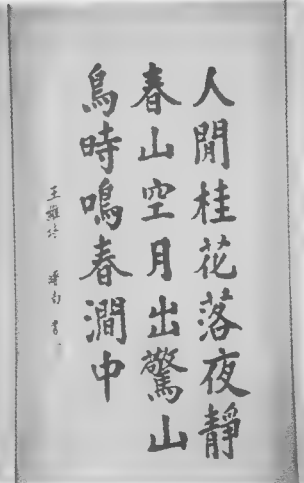 人閒桂花落夜靜
春山空月出驚山
鳥時鳴春澗中
王維詩 南書